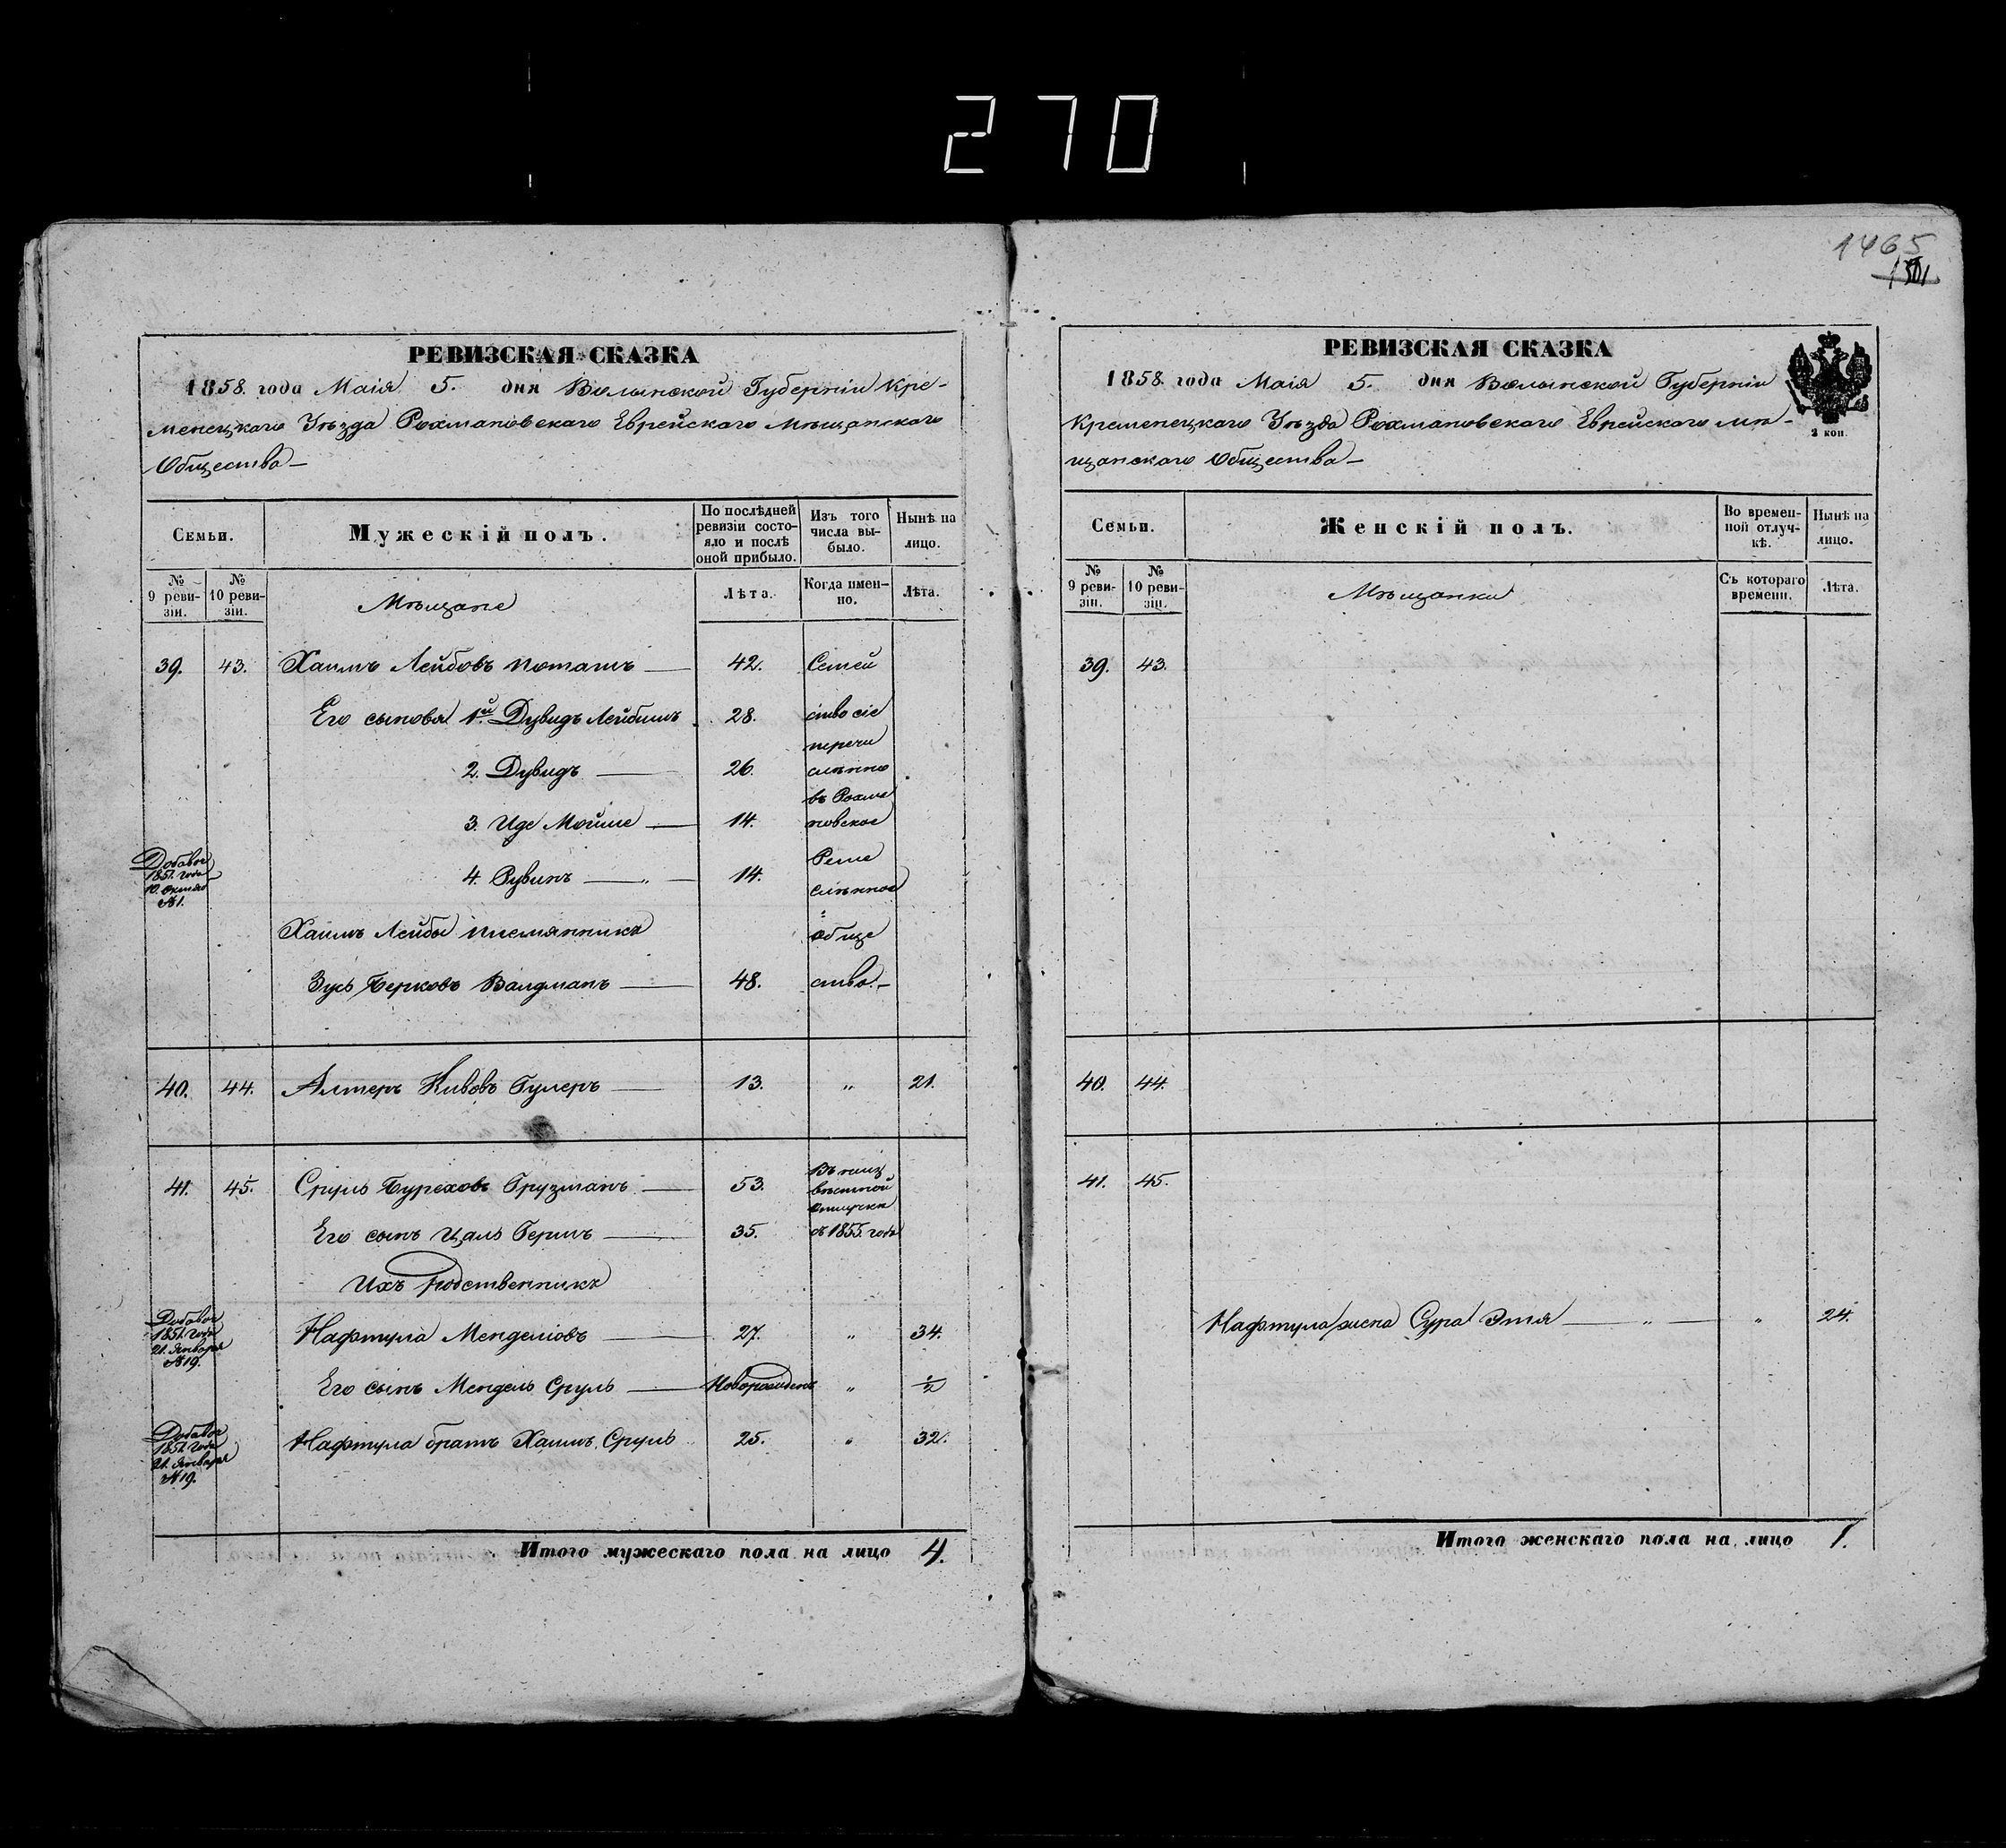 270
1465
1501
РЕВИЗСКАЯ СКАЗКА
1858. года Маія 5. дня Волынской Губерніи Кре-
менецкаго Уѣзда Рохмановскаго Еврейскаго Мѣщанскаго
Общества
Семьи.
Мужескій полъ.
По послѣдней ревизіи состояло и послѣ оной прибыло.
Изъ того числа выбыло.
Нынѣ на лицо.
№ 9 ревизіи.
№ 10 ревизіи.
Мѣщане
Лѣта.
Когда именно.
Лѣта.
39. 43. Хаимъ Лейбовъ Поташъ 42. Семей
Его сыновья 1й Дувидъ Лейбишъ 28. ство сіе
перечи
2. Дувидъ 26. сленно
въ Рохма
3. Иде Мойше 14. новское
Добавоч 1851. года 10. Октяб №1.
4. Рувинъ 14. Реме
сленное
Хаимъ Лейбы племянникъ обще
Зусь Берковъ Валдманъ 48. ство.
40. 44. Алтеръ Кивовъ Гулеръ 13. " 21.
41. 45. Сруль Бурѣховъ Грузманъ 53. Въ неиз
вѣстной
отлучкѣ
Его сынъ Цаль Гершъ 35. съ 1855. года
Ихъ родственникъ
Добавоч 1851. года 21. Января №19.
Нафтула Менделіовъ 27. " 34.
Его сынъ Мендель Сруль Новорожденъ " ½
Добавоч 1851. года 21. Января №19.
Нафтула братъ Хаимъ Сруль 25. " 32.
Итого мужескаго пола на лицо 4.
РЕВИЗСКАЯ СКАЗКА
1858. года Маія 5. дня Волынской Губерніи
Кременецкаго Уѣзда Рохмановскаго Еврейскаго Мѣ-
щанскаго Общества
2 коп.
Семьи.
Женскій полъ.
Во временной отлучкѣ.
Нынѣ на лицо.
№ 9 ревизіи.
№ 10 ревизіи.
Мѣщанки
Съ котораго времени.
Лѣта.
39. 43.
40. 44.
41. 45.
Нафтула жена Сура Этя " " 24.
Итого женскаго пола на лицо 1.